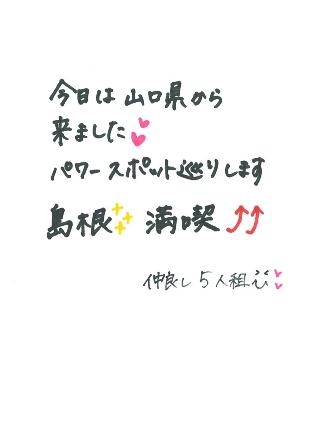 今日は山口県から
来ました
パワースポット巡りします
島根 満喫
仲良し5人組